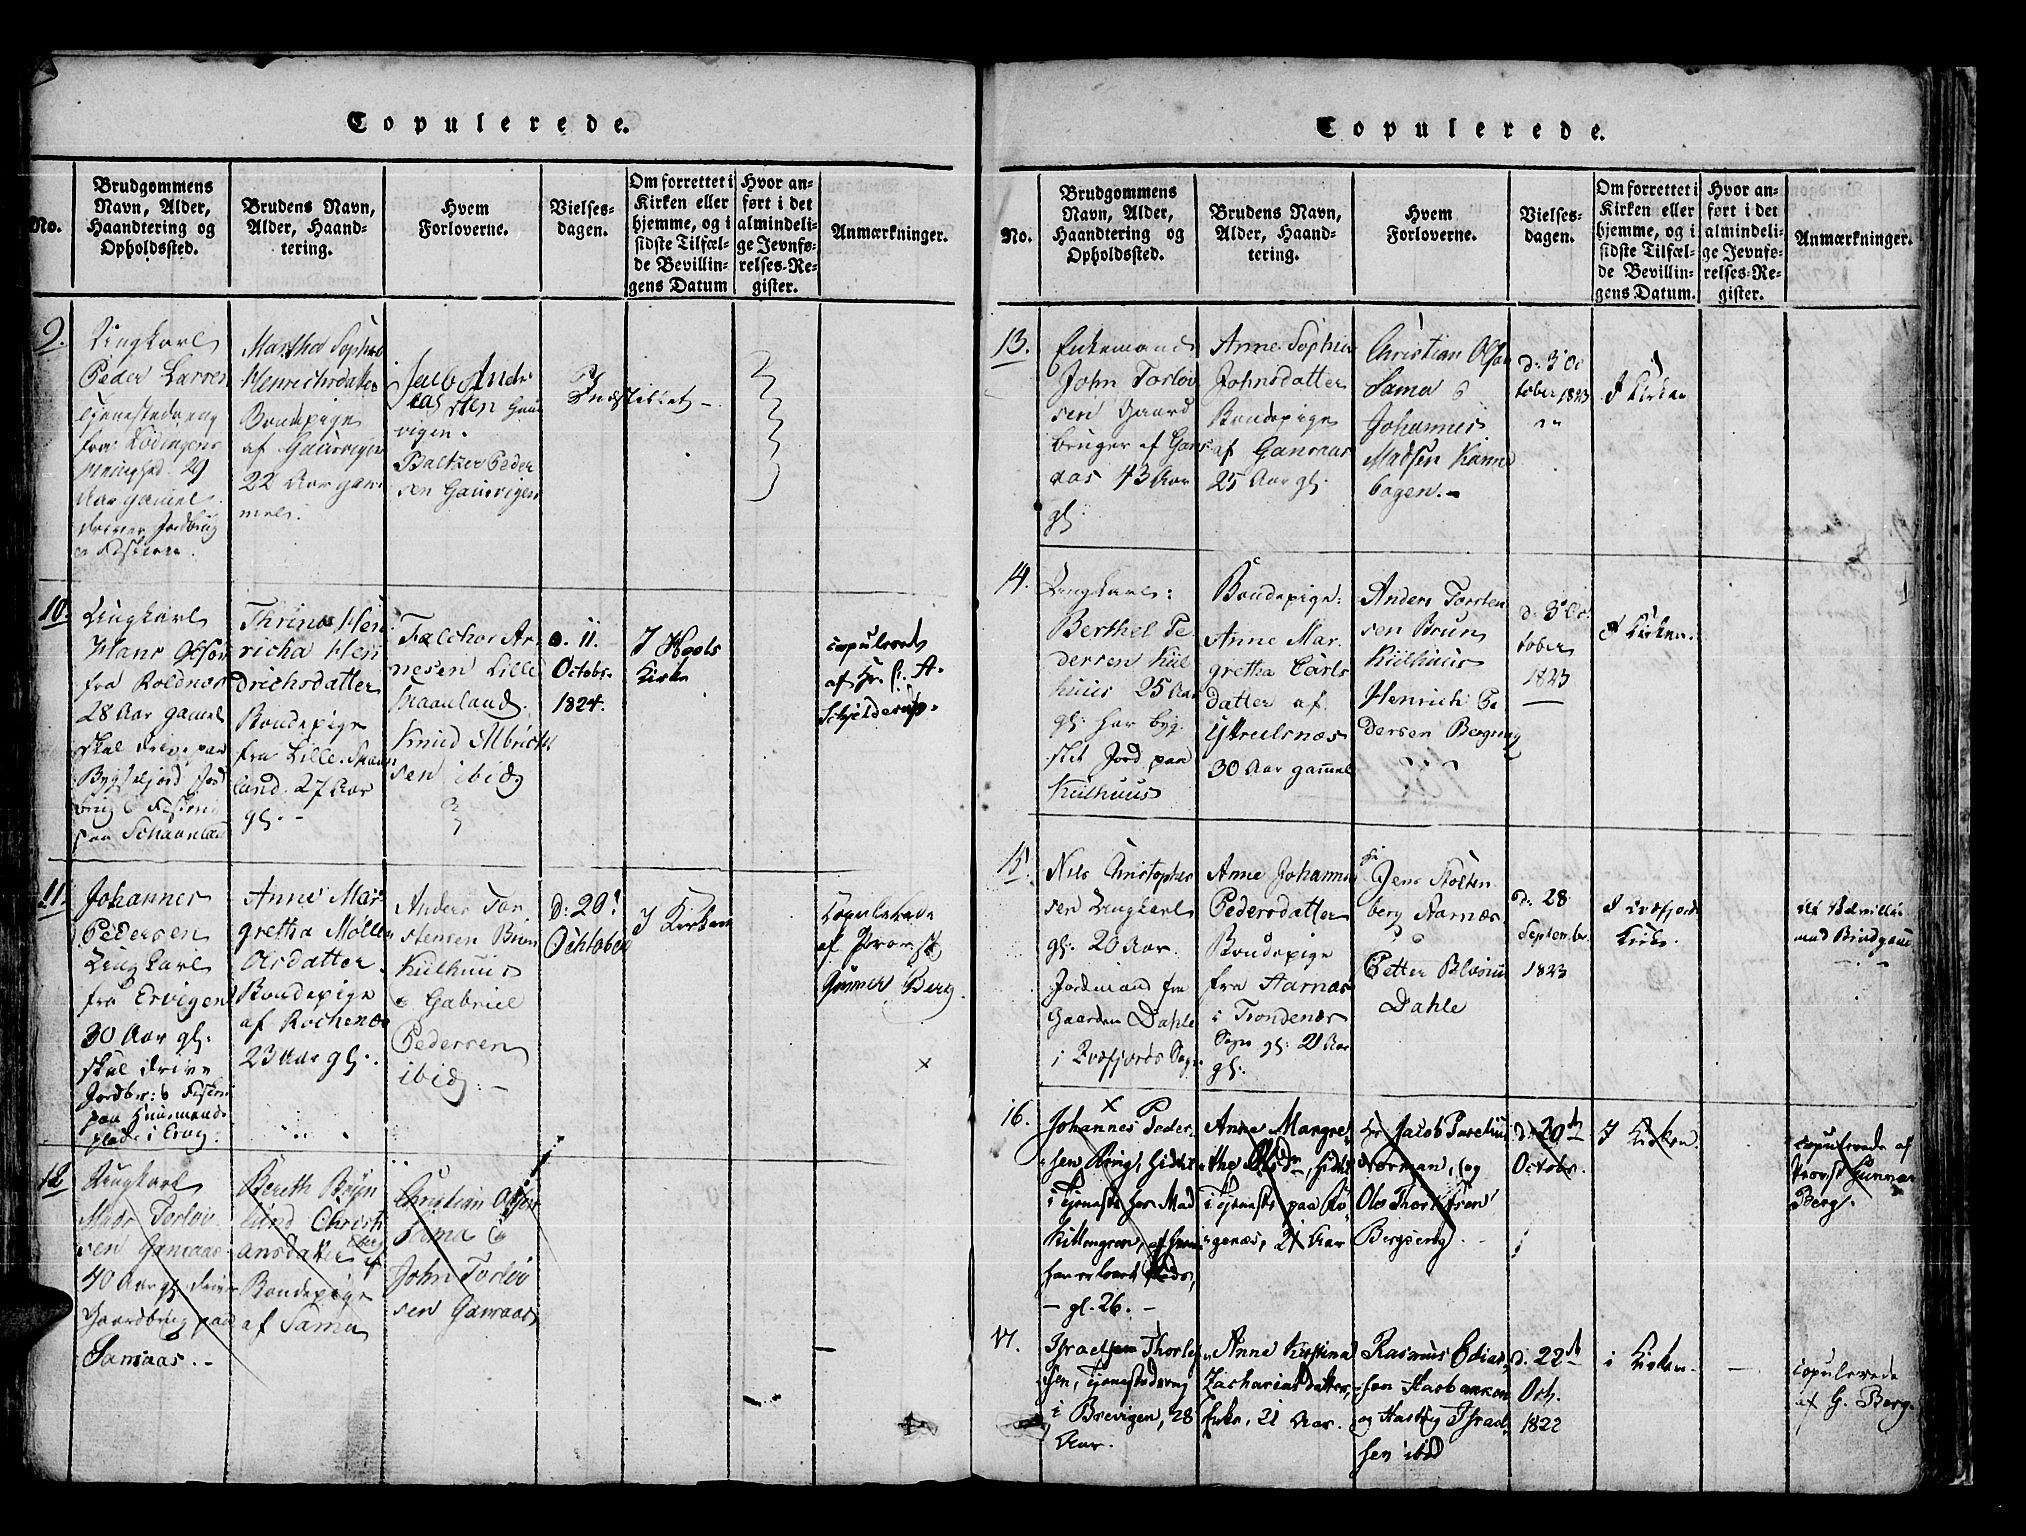 Copulerede.
No.
Brudgommens
Navn, Alder,
Haandtering og
Opholdssted.
Brudens Navn,
Alder, Haand-
tering.
Hvem
Forloverne.
Vielses-
dagen.
Om forrettet i
Kirken eller
hjemme, og i
sidste Tilfæl-
de Bevillin-
gens Datum
Hvor an-
ført i det
almindeli-
ge Jevnfø-
relses-Re-
gister.
Anmærkninger.
9.
Ungkarl
Peder Larsen
Tjenestedreng
fra Lødingens
Menighed 29
Aar gamel
Martha Sophie
Henrichsdatter
Bondepige
af Gausvigen
22 Aar gam
mel.
Jacob Andr
eas sten Gaus
vigen.
Baltzer Peder
sen Gausvigen
Indstillet
10.
Ungkarl
Hans Olsøn
fra Roldnæs
28 Aar gamel
skal drive paa
Bygseljord Jord
brug & Fiskeri
paa Schaanland
Thrina Hen
richa Hen
drichsdatter
Bondepige
fra Lille Skaan
land. 27 Aar
gl. -
Falchor Ar
nesen Lille
Skaanland.
Knud Albricht
sen ibid
d. 11.
Octobr.
1824.
I Hools
Kirke
copulerede
af Hr. A.
Schjelderup.
11.
Johannes
Pedersen
Ungkarl
fra Ervigen
30 Aar gl.
skal drive
Jordbr: & Fiskeri
paa Huusmands
plads i Ervig.
Anne Mar
gretha Möller
Olsdatter
Bondepige
af Rochenæs
23 Aar gl.
Anders Tor
stensen Brun
Kulhuus
& Gabriel
Pedersen
ibid. -
D: 20
Ochtober
I Kirken
Copulerede
af Provst
Gunner Berg.
x
12
Ungkarl
Mads Torlov
sen Gansaas
40 Aar gl. driver
Gaardbrug paa
Sansaas. -
Bereth Bryn
lund Christi
ansdatter
Bondepige
af Sama
Christian Olsen
Sama &
John Torlov
sen Gansaas
Copulerede.
No.
Brudgommens
Navn, Alder,
Haandtering og
Opholdssted.
Brudens Navn,
Alder, Haand-
tering.
Hvem
Forloverne.
Vielses-
dagen.
Om forrettet i
Kirken eller
hjemme, og i
sidste Tilfæl-
de Bevillin-
gens Datum.
Hvor an-
ført i det
almindeli-
ge Jevnfø-
relses-Re-
gister.
Anmærkninger.
13.
Enkemand
John Torlov
sen Gaard
bruger af Gans
aas 43 Aar
gl.
Anne Sophie
Johnsdatter
Bondepige
af Gansaas
25 Aar gl.
Christian Olsen
Sama &
Johannes
Madsen Kanne
bogen. -
d. 3 Oc
tober 1823
I Kirken
14.
Ungkarl:
Berthel Pe
dersen Kul
huus 25 Aar
gl. har byg
slet Jord paa
Kulhuus
Bondepige:
Anne Mar
gretha Carls
datter af
30 Aar gamel
Anders Torsten
sen Brun
Kulhuus
Henrich Pe
dersen Bergseng
d. 3 Oc
tober
1823
I Kirken.
15.
Nils Christopher
sen Ungkarl
gl. 20 Aar.
Jordmand fra
Gaarden Dahle
i Qvæfjords Sogn
Anne Johanna
Pedersdatter
Bondepige
fra Aarnæs
i Trondenæs
Sogn gl. 21 Aar
gl.
Jens Stolten
berg Aarnæs
Petter Blasius
Dahle
d. 28
September
1823
I Qvæfjords
Kirke.
16.
x
Johannes Peder-
sen Ring, sidst
i Tjeneste hos Mad
- gl. 26. -
Anne Margre-
the, sidst
i Tjeneste paa Rø-
genæs, 21 Aar
Hr Jacob Parelius
Norman, og
Ole Thorstensen
Bergseng.
d. 20de
Octobr.
I Kirken
copulerede af
Provst Gunnar
Berg.
17.
Israel Thorles
sen, Tjenestedreng
i Brevigen, 28
Aar.
Anne Kirstina
Zachariasdatter,
Enke, 21 Aar.
Rasmus Edias
sen Aarbakken
og Hartvig Israel-
sen ibid
d. 22de
Oct.
1822
i Kirken
copulerede
af G. Berg.